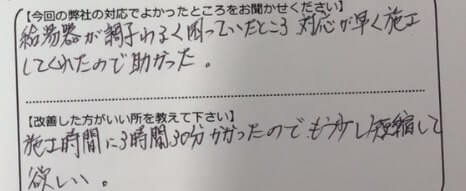 【今回の弊社の対応でよかったところをお聞かせください】
給湯器が調子わるく困っていたところ 対応が早く施工
してくれたので助かった。
【改善した方がいい所を教えて下さい】
施工時間に3時間30分かかったので もう少し短縮して
欲しい。